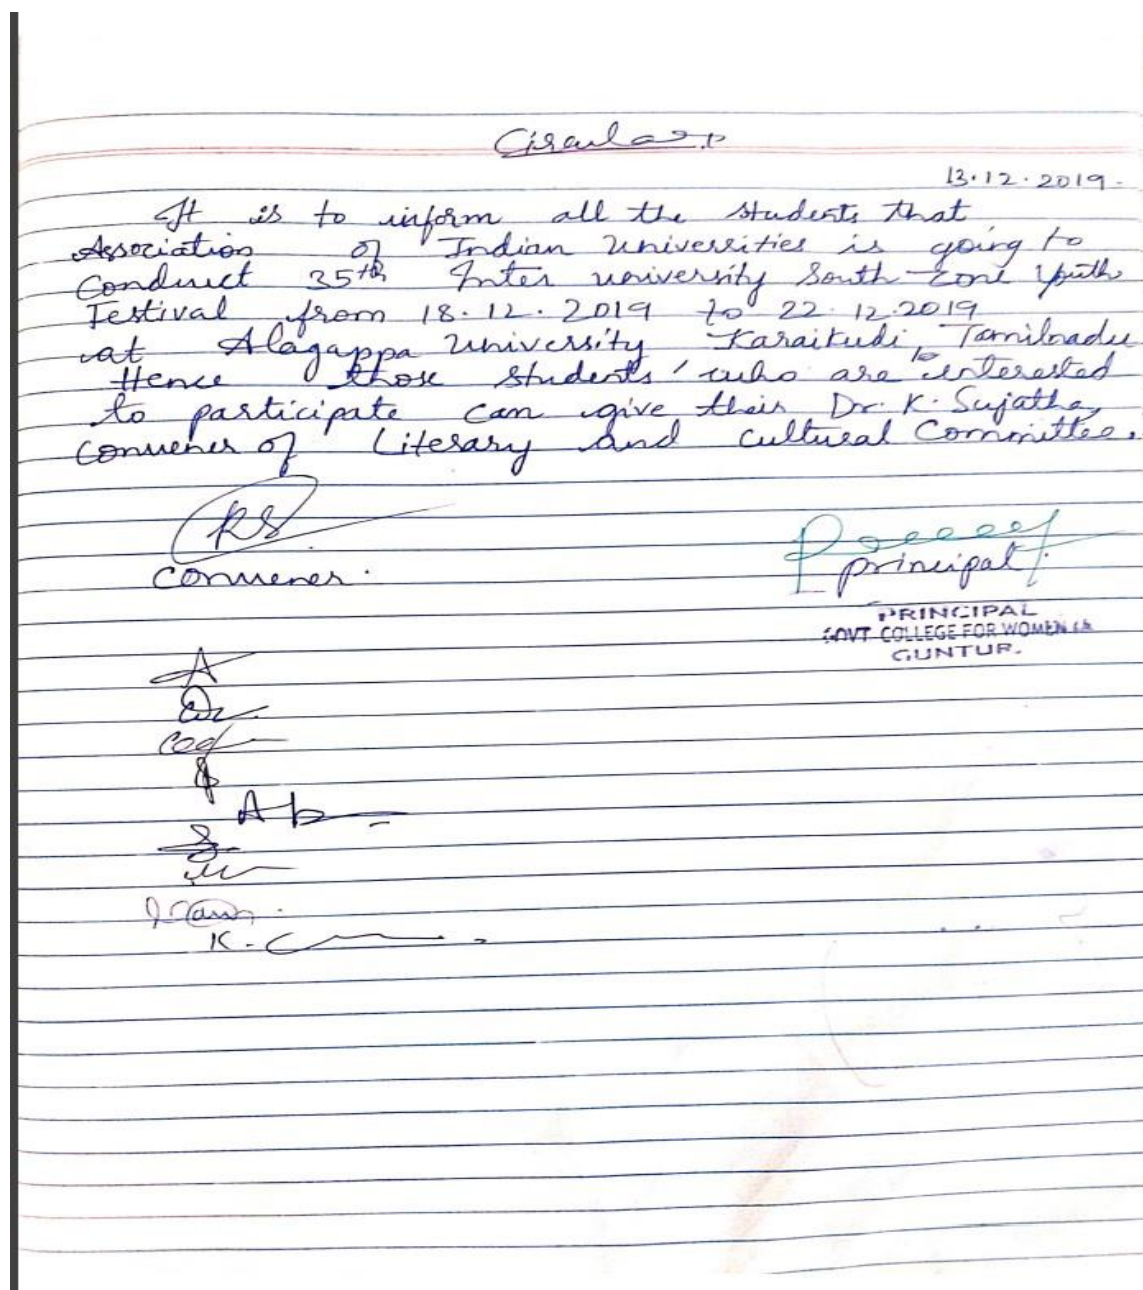 Circular
13.12.2019.
It is to inform all the students that
Association of Indian Universities is going to
Conduct 35th Inter university South Zone Youth
Festival from 18.12.2019 to 22.12.2019
at Alagappa University Karaikudi, Tamilnadu
Hence those students who are interested
to
to participate can give their Dr. K. Sujatha,
convener of Literary and cultural Committee.
RS
Convener.
principal
PRINCIPAL
GOVT. COLLEGE FOR WOMEN
GUNTUR.
A
Ab
K.